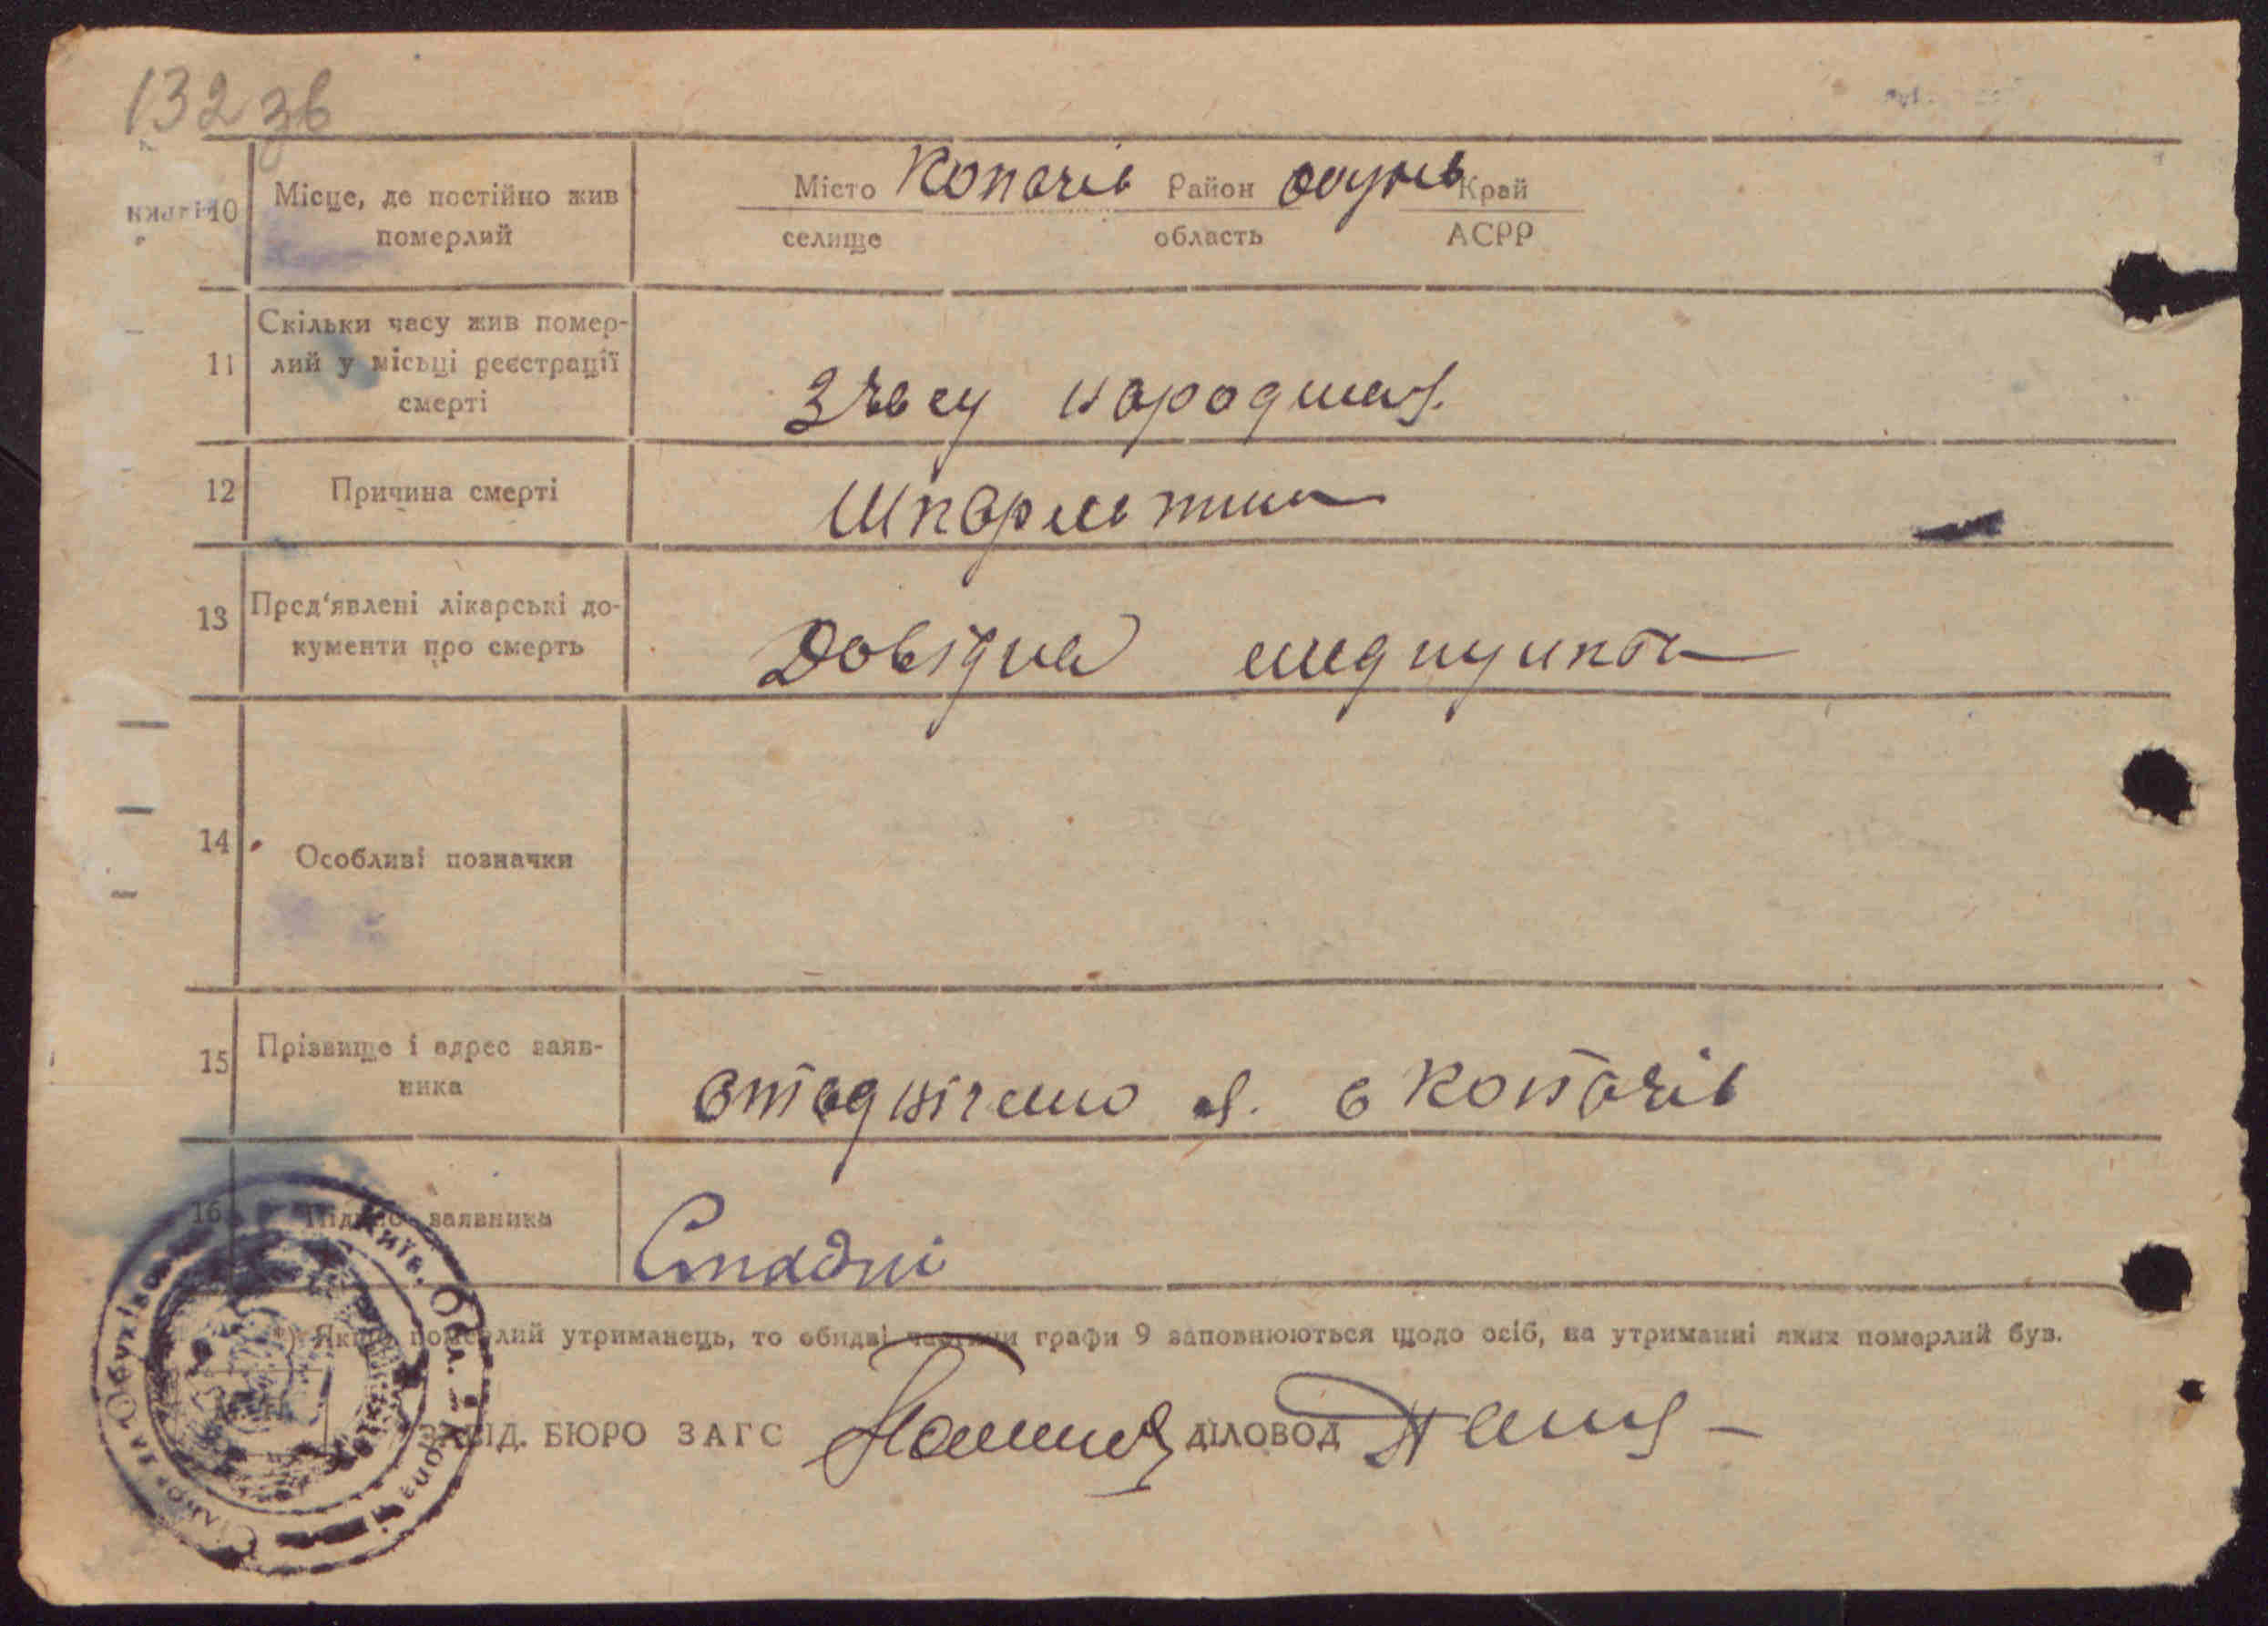 132 зв
10 Місце, де постійно жив померлий
Місто Копачів Район Край
селище область АСРР
11 Скільки часу жив помер-
лий у місьці реєстрації
смерті
З часу народжен.
12 Причина смерті
Шкарлатина
13 Пред'явлені лікарські до-
кументи про смерть
Довідка медпункта
14 Особливі позначки
15 Прізвище і адрес заяв-
ника
с Копачів
16 Підпис заявника
*) Якщо померлий утриманець, то обидві частини графи 9 заповнюються щодо осіб, на утриманні яких померлий був.
ЗАВІД. БЮРО ЗАГС ДІЛОВОД